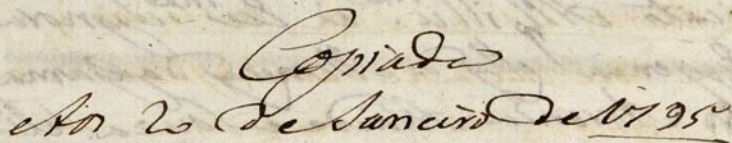 Copiado
Aos 20 de Janeiro de 1795